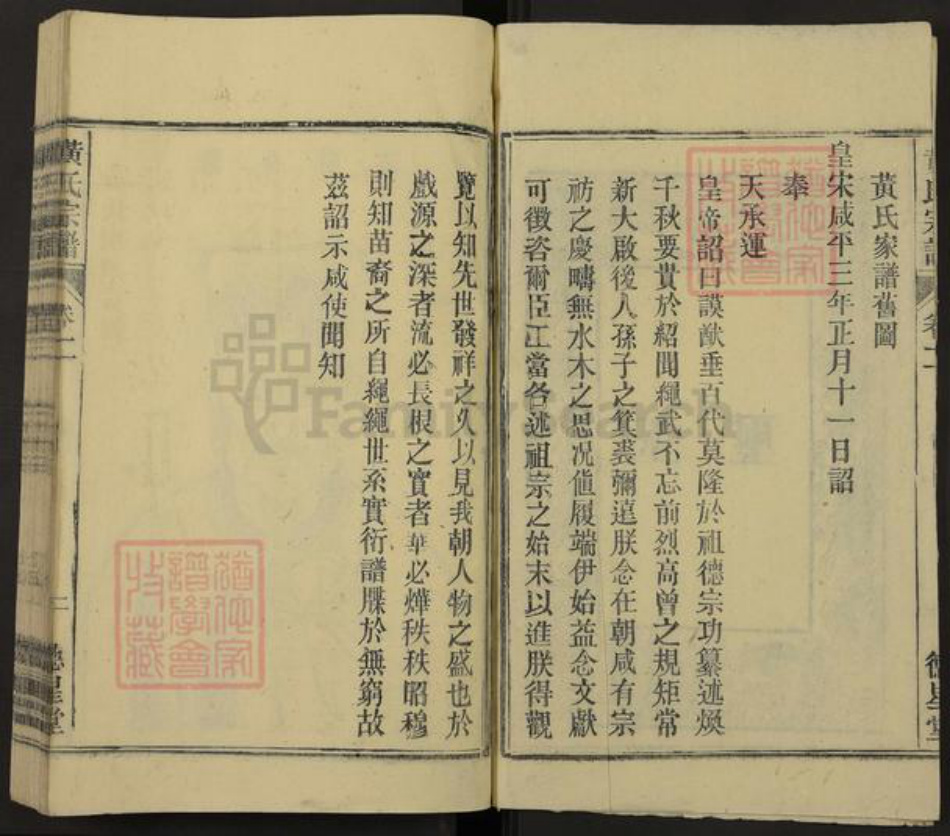 黃氏家譜舊圖
皇宋咸平三年正月十一日詔
奉
天承運
皇帝詔曰謨猷垂百代莫隆於祖德宗功纂述煥
千秋要貴於紹聞繩武不忘前烈高曾之規矩常
新大啟後人孫子之箕裘彌遠朕念在朝咸有宗
祊之慶疇無水木之思况值履端伊始益念文獻
可徵咨爾臣工當各述祖宗之始末以進朕得觀
覽以知先世發祥之久以見我朝人物之盛也於
戲源之深者流必長根之實者華必燁秩秩昭穆
則知苗裔之所自繩繩世系實衍譜牒於無窮故
茲詔示咸使聞知
黃氏宗譜
卷二
二
德星堂
FamilySearch